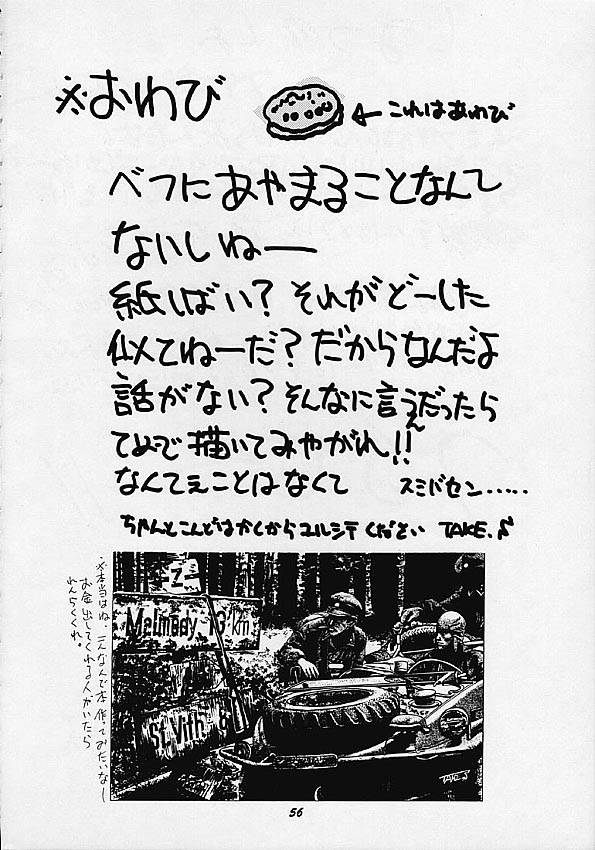 ※おわび
←これはあわび
べつにあやまることなんて
ないしねー
紙しばい？それがどーした
似てねーだ？だからなんだよ
話がない？そんなに言うんだったら
てめーで描いてみやがれ!!
なんてぇことはなくて スミバセン……
ちゃんとこんどはかくからユルシテください TAKE.♪
※本当はね、こんなんで本作ってみたいなー
お金出してくれる人がいたら
れんらくくれ。
-Z-
Malmedy 13 km
St.Vith 8
TAKE.♪
56